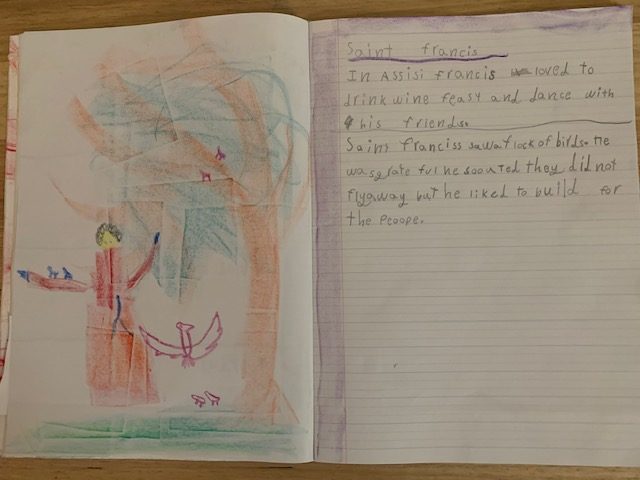 Saint francis
In Assisi francis loved to
drink wine feasy and dance with
his friends.
Saint franciss saw a flock of birds. He
was grate ful he soouted they did not
fly away but he liked to build for
the peoope.